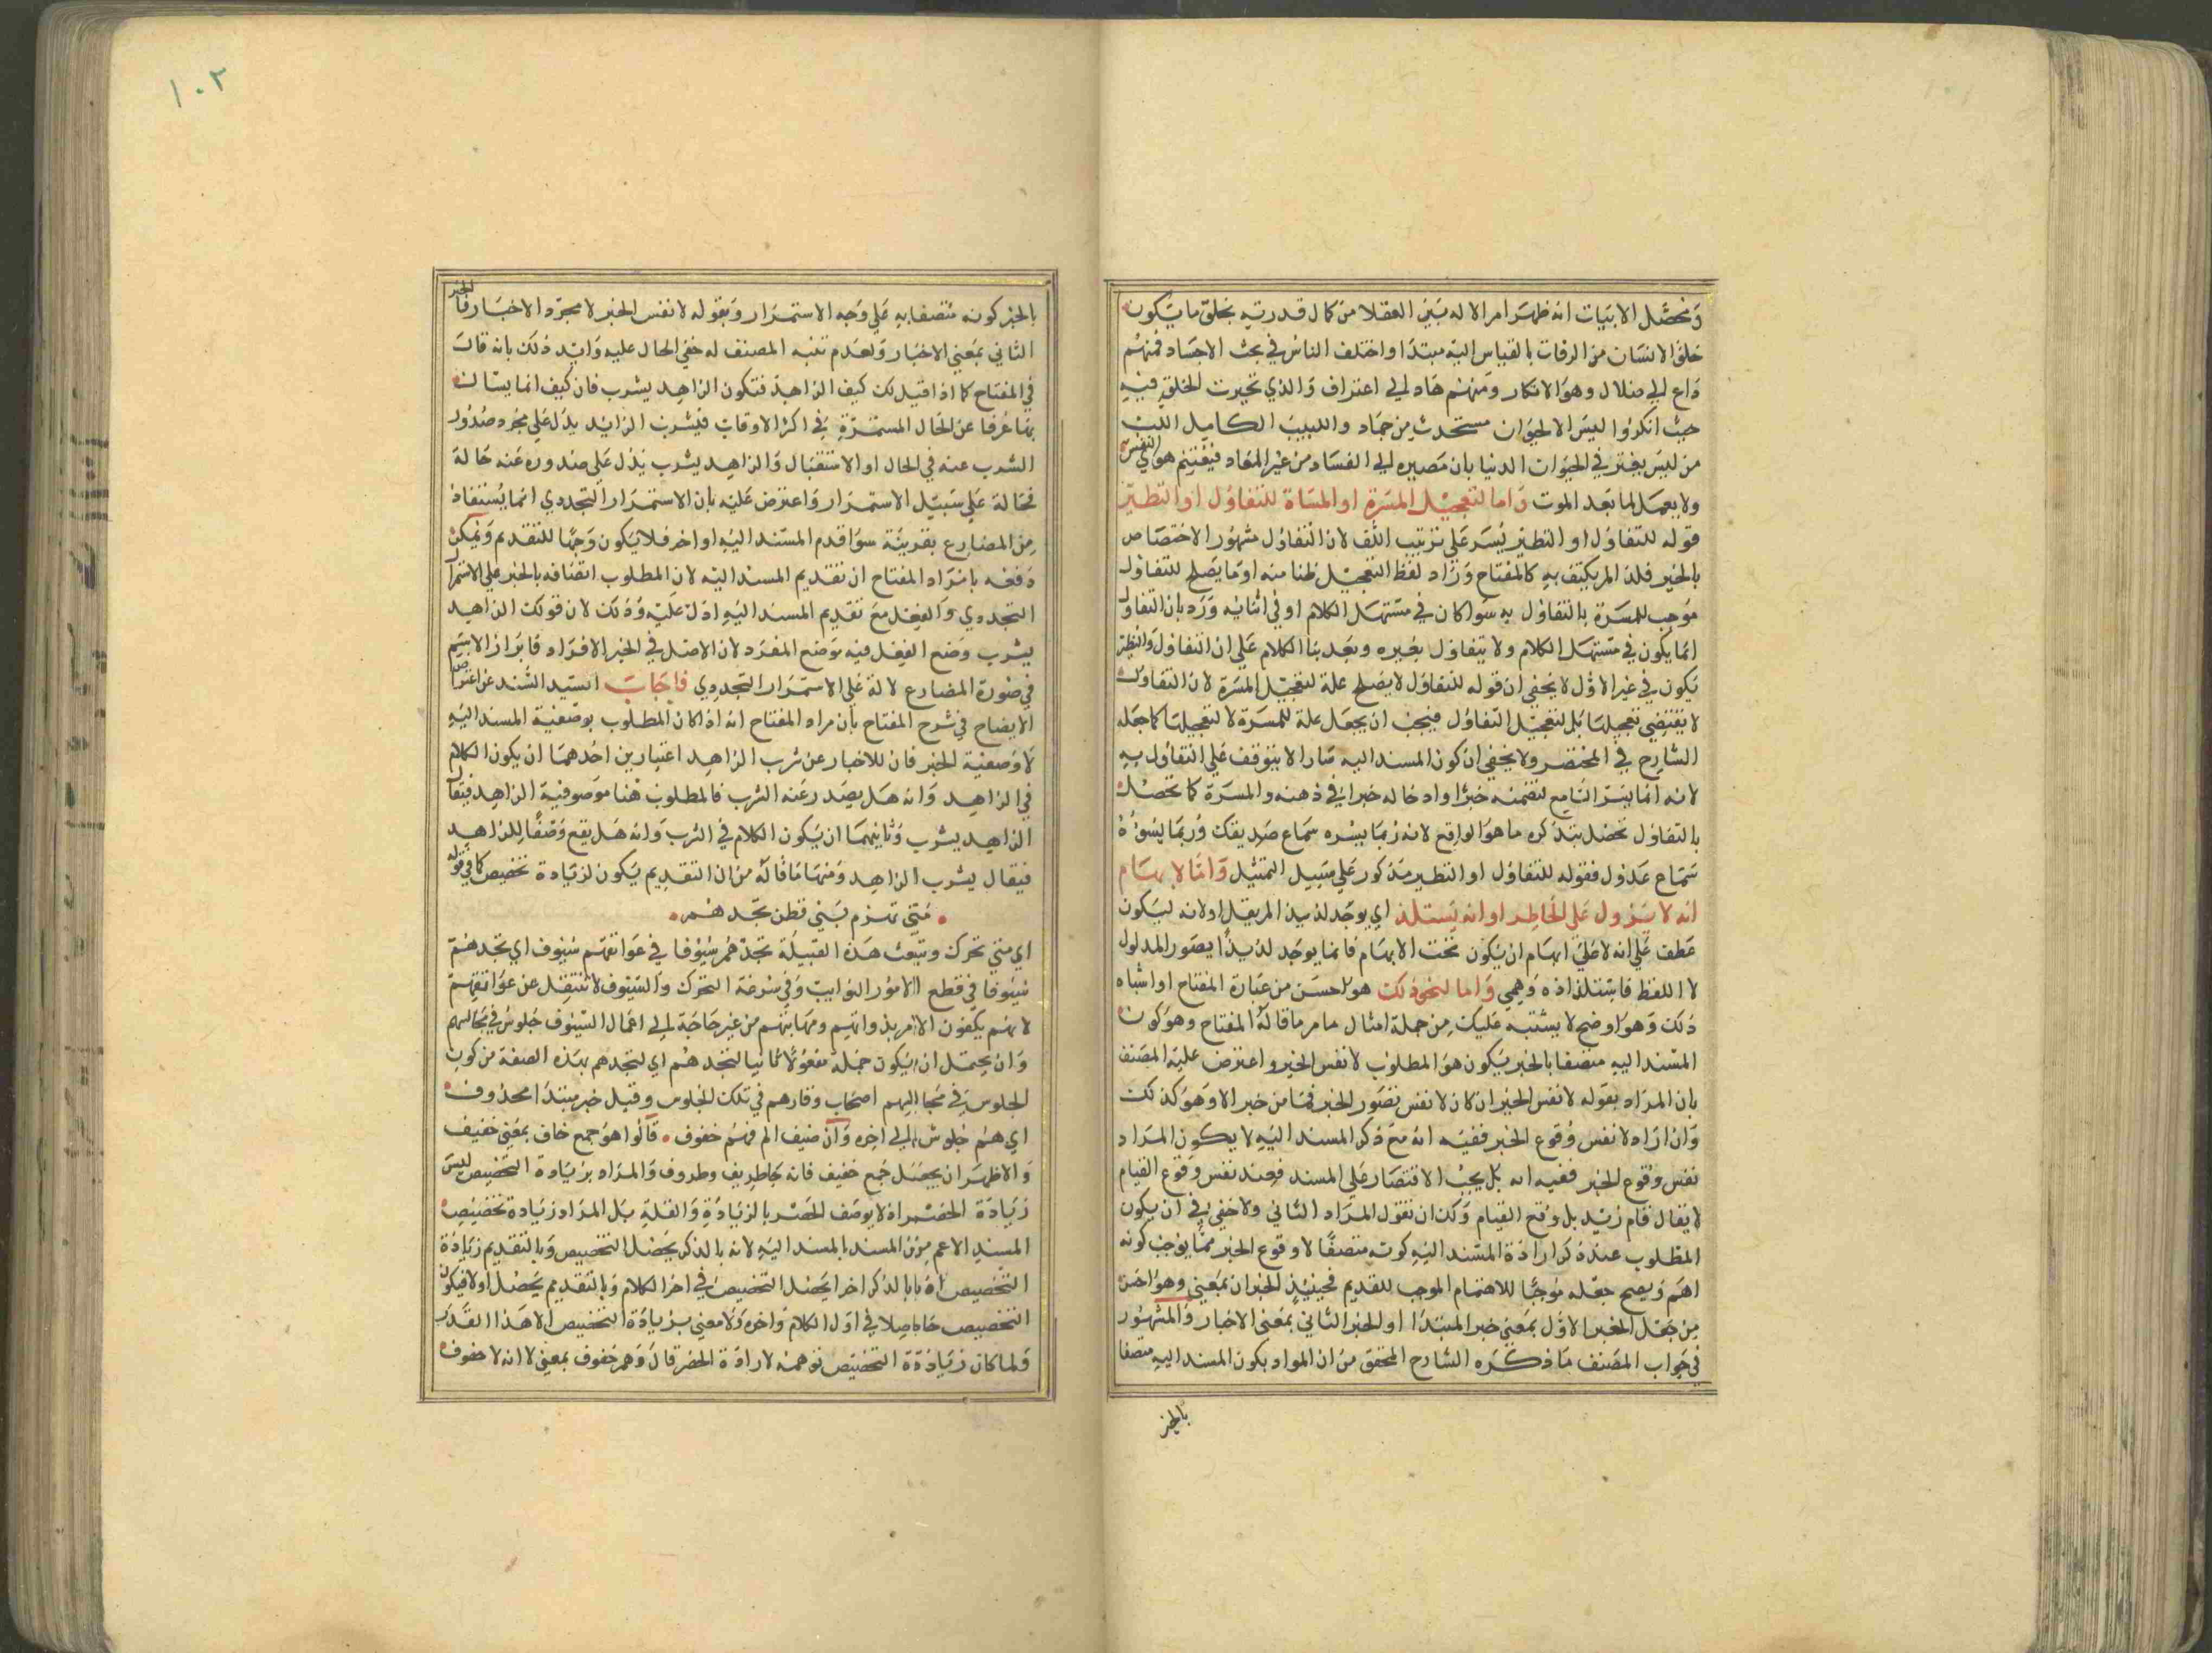 ومحصل الابيات انه ظهر امر الاله بين العقلا من كمال قدرته بخلق ما يكون
خلق الانسان من الرفات بالقياس اليه مبتدا واختلف الناس في بحث الاجساد فمنهم
داع الي ضلال وهو الانكار ومنهم هاد الي اعتراف والذي تحيرت الخلق فيه
حيث انكروا ليس الا لحيوان مستحدث من جماد واللبيب الكامل اللب
من ليس يغتر في الحيوات الدنيا بان مصيره الي الفساد من غير المعاد فيغتنم هوي النفس
ولا يعمل لما بعد الموت واما لتعجيل المسرة او المساة للتفاؤل او التطير
قوله للتفاؤل او التطير نشر علي ترتيب اللف لان التفاؤل مشهور الاختصاص
بالخير فلذا لم يكتف به كالمفتاح وزاد لفظ التعجيل ظنا منه او ما يصلح للتفاؤل
موجب للمسرة بالتفاؤل به سوا كان في مستهل الكلام او في اثنائه ورد بان التفاول
انما يكون في مستهل الكلام ولا يتفاول بغيره وبعد بنا الكلام علي ان التفاول والتطير
يكون في غير الاول لا يخفي ان قوله للتفاؤل لا يصلح علة لتعجيل المسرة لان التفاول
لا يقتضي تعجيلها بل لتعجيل التفاؤل فيجب ان يجعل علة للمسرة لا لتعجيلها كما جعله
الشارح في المختصر ولا يخفي ان كون المسند اليه سارا لا يتوقف علي التفاول به
لانه انما يسر السامع لتضمنه خبرا وادخاله خبرا في ذهنه والمسرة كما تحصل
بالتفاؤل تحصل بتذكره ما هو الواقع لانه ربما يسره سماع صديقك وربما يسوؤه
سماع عذول فقوله للتفاؤل او التطير مذكور علي سبيل التمثيل واما لايهام
انه لا يزول علي الخاطر او انه يستلذ اي يوجد لذيذا لم يقل او لانه ليكون
عطف علي انه لا علي ايهام ان يكون تحت الايهام فانما يوجد لذيذا يصور المدلول
لا اللفظ فاستلذاذه وهمي واما لنحو ذلك هو احسن من عبارة المفتاح او اشباه
ذلك وهو اوضح لا يشتبه عليك من جملة امثال ما مر ما قاله المفتاح وهو كون
المسند اليه متصفا بالخبر يكون هو المطلوب لا نفس الخبر واعترض عليه المصنف
بان المراد بقوله لا نفس الخبر ان كان لا نفس تصور الخبر فما من خبر الا وهو كذلك
وان اراد لا نفس وقوع الخبر ففيه انه مع ذكر المسند اليه لا يكون المراد
نفس وقوع الخبر ففيه انه بل يجب الاقتصار علي المسند فعند نفس وقوع القيام
لا يقال قام زيد بل وقع القيام ولك ان تقول المراد الثاني ولا خفي في ان يكون
المطلوب عند ذكر ارادة المسند اليه كونه متصفا لا وقوع الخبر مما يوجب كونه
اهم ويصح جعله موجبا للاهتمام الموجب للتقديم فحينئذ الخبران بمعني وهو احسن
من جعل الخبر الاول بمعني خبر المبتدا او الخبر الثاني بمعني الاخبار والمشهور
في جواب المصنف ما ذكره الشارح المحقق من ان المراد بكون المسند اليه متصفا
بالخبر
١٠٢
بالخبر كونه متصفا به علي وجه الاستمرار وبقوله لا نفس الخبر لا مجرد الاخبار فالخبر
الثاني بمعني الاخبار ولعدم تنبه المصنف له خفي الحال عليه وايد ذلك بانه قال
في المفتاح كما اذا قيل لك كيف الزاهد فتكون الزاهد يشرب فان كيف انما يسال
بها عرفا عن الحال المستمرة في اكثر الاوقات فيشرب الزايد يدل علي مجرد صدور
الشرب عنه في الحال او الاستقبال والزاهد يشرب يدل علي صدوره عنه حالة
فحالة علي سبيل الاستمرار واعترض عليه بان الاستمرار التجددي انما يستفاد
من المضارع بقرينة سوا قدم المسند اليه او اخر فلا يكون وجها للتقديم ويمكن
دفعه بان مراد المفتاح ان تقديم المسند اليه لان المطلوب اتصافه بالخبر علي الاستمرار
التجددي والفعل مع تقديم المسند اليه ادل عليه وذلك لان قولك الزاهد
يشرب وضع الفعل فيه موضع المفرد لان الاصل في الخبر الافراد فابراز الاسم
في صورة المضارع لالة علي الاستمرار التجددي فاجاب السيد السند عن اعتراض
الايضاح في شرح المفتاح بان مراد المفتاح انه اذا كان المطلوب بوصفية المسند اليه
لا وصفية الخبر فان للاخبار عن شرب الزاهد اعتبارين احدهما ان يكون الكلام
في الزاهد وانه هل يصدر عنه الشرب فالمطلوب هنا موصوفية الزاهد فيقال
الزاهد يشرب وثانيهما ان يكون الكلام في الشرب وانه هل يقع وصفا للزاهد
فيقال يشرب الزاهد ومنها ما قاله من ان التقديم يكون لزيادة تخصيص كما في قوله
متي تهزم بني قطن تجدهم
اي متي تحرك وتبعث هذه القبيلة تجدهم سيوفا في عواتقهم سيوف اي تجدهم
سيوفا في قطع الامور النوايب وفي سرعة التحرك والسيوف لا تنتقل عن عواتقهم
لانهم يكفون الامر بذواتهم ومهابتهم من غير حاجة الي اعمال السيوف جلوس في مجالسهم
وان يحتمل ان يكون جملة مفعولا ثانيا لتجدهم اي لتجدهم بهذه الصفة من كون
الجلوس في مجالسهم اصحاب وقارهم في تلك الجلوس وقيل خبر مبتدا محذوف
اي هم جلوس الي اخره وان ضيف الم فهم خفوف قالوا هو جمع خاف بمعني خفيف
والاظهر ان يجعل جمع خفيف فانه كظريف وظروف والمراد بزيادة التخصيص ليس
زيادة الحصر اذ لا يوصف الحصر بالزيادة والقلة بل المراد زيادة تخصيص
المسند الاعم من المسند بالمسند اليه لانه بالذكر يحصل التخصيص وبالتقديم زيادة
التخصيص اذ بالذكر اخرا يحصل التخصيص في اخر الكلام وبالتقديم يحصل اولا فيكون
التخصيص حاصلا في اول الكلام واخره ولا معني بزيادة التخصيص الا هذا القدر
ولما كان زيادة التخصيص توهمه لارادة الحصر قال وهم خفوف بمعني لا انه لا خفوف